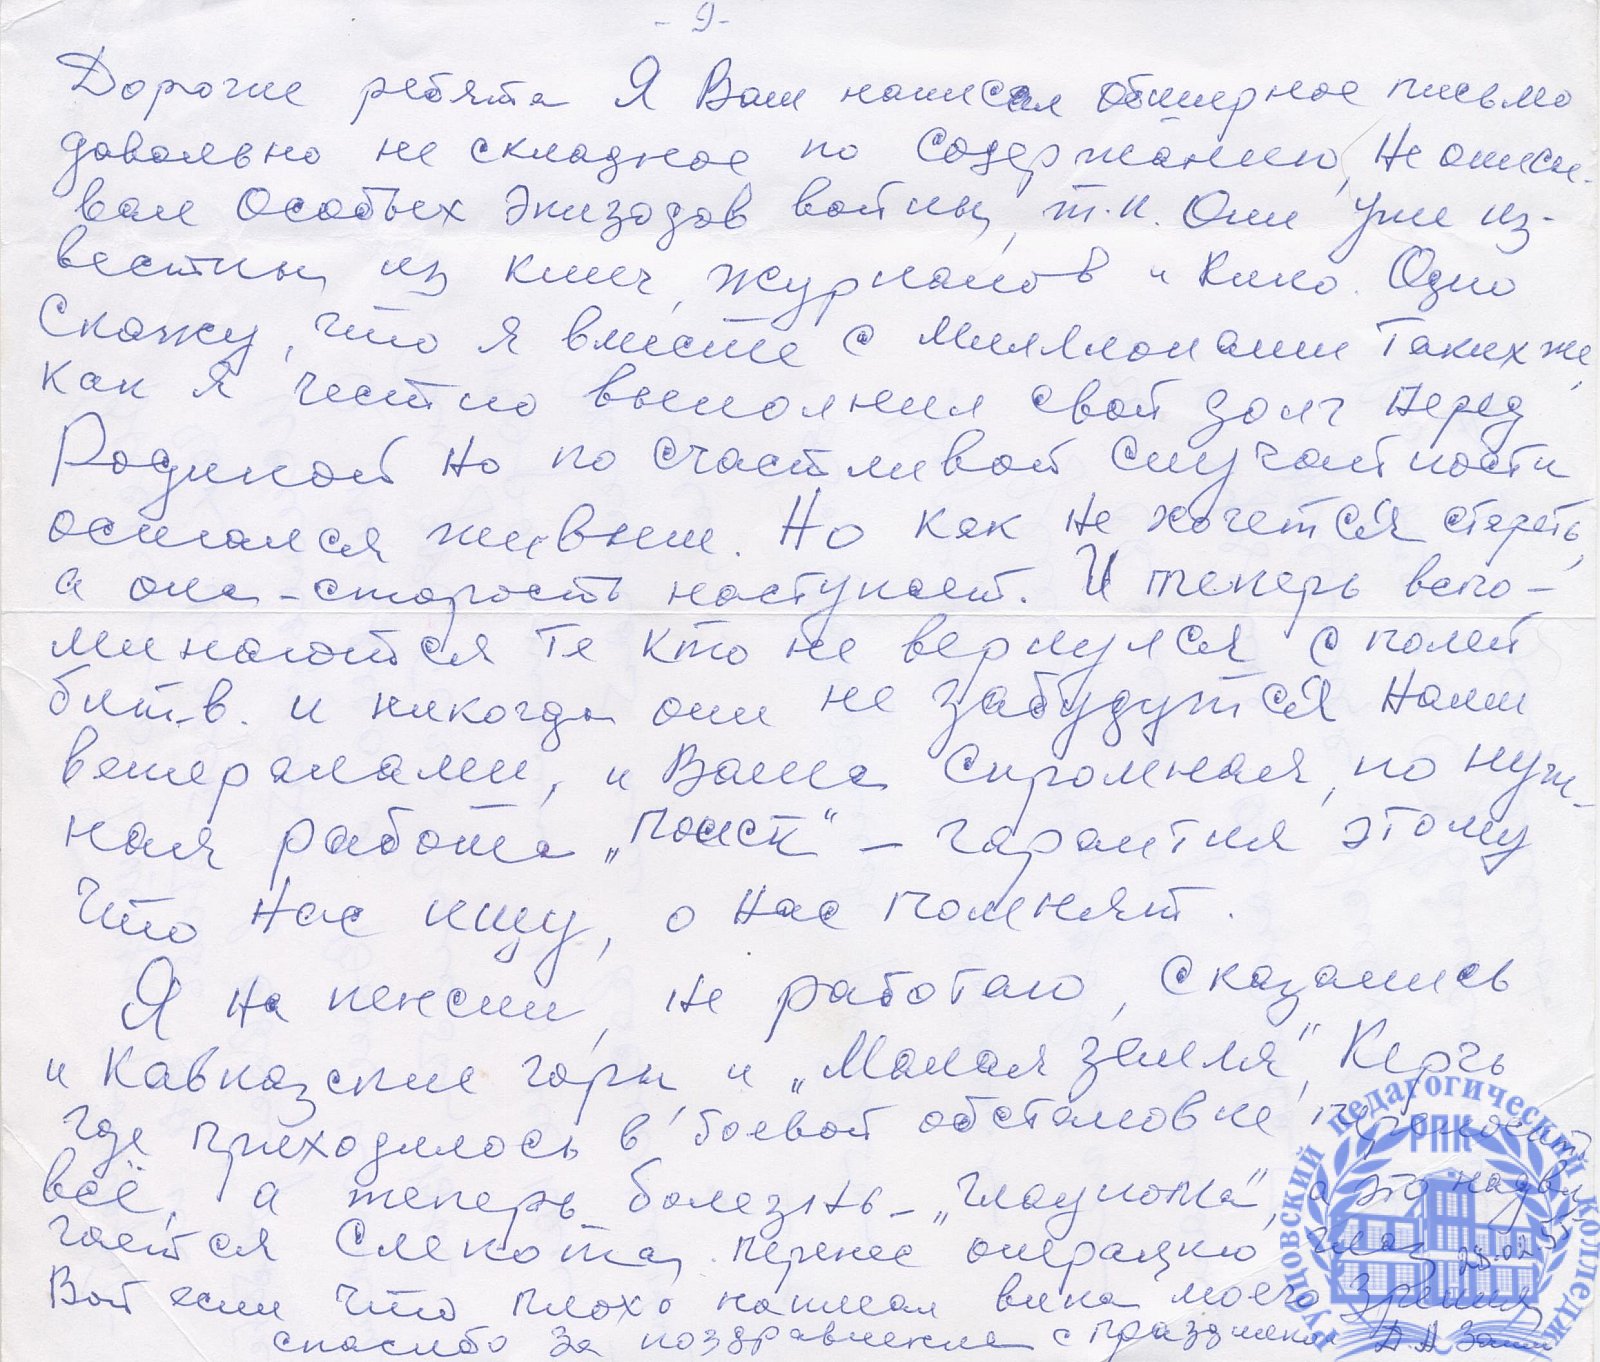 - 9 -
Дорогие ребята Я Вам написал обширное письмо
довольно не складное по содержанию, Не описы-
вал Особых эпизодов войны, т.к. Они уже из-
вестны из книг, журналов и Кино. Одно
Скажу, что я вместе с миллионами таких же,
как я честно выполнил свой долг перед
Родиной но по счастливой случайности
остался живым. Но как не хочется стареть,
а она - старость наступает. И теперь вспо-
минаются те кто не вернулся с полей
битв. и никогда они не забудутся нами
ветеранами, и Ваша скромная, но нуж-
ная работа „Поиск" – гарантия этому
что нас ищу, о нас помнят.
Я на пенсии, не работаю, сказались
и Кавказские горы и „Малая земля", Керчь
где приходилось в боевой обстановке
всё, а теперь болезнь - „глаукома", а это надви
гается слепота, перенес операцию глаз 28.02.
Вот если что плохо написал вина моего зрения
спасибо за поздравление с праздником Д.А.
Гуковский педагогический колледж
РПК